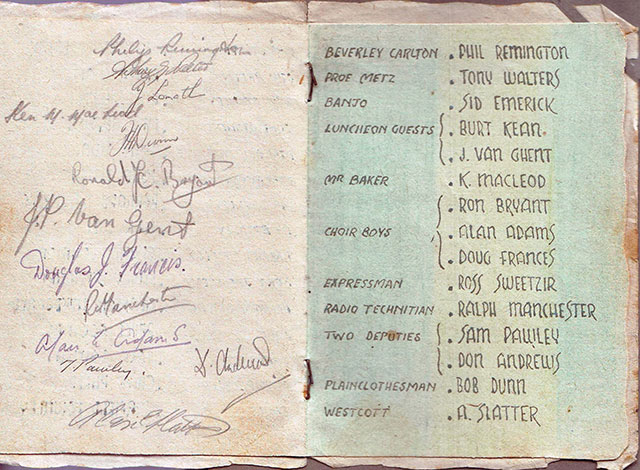 Philip Remington
Ken M. MacLeod
Ronald C. Bryant
J.P. Van Gent
Douglas J. Francis.
R Manchester
Alan E Adams
Pawley.
D. Andrews
BEVERLEY CARLTON . PHIL REMINGTON
PROF METZ . TONY WALTERS
BANJO . SID EMERICK
LUNCHEON GUESTS { . BURT KEAN
. J. VAN GHENT
MR BAKER . K. MACLEOD
. RON BRYANT
CHOIR BOYS { . ALAN ADAMS
. DOUG FRANCES
EXPRESSMAN . ROSS SWEETZIR
RADIO TECHNITIAN . RALPH MANCHESTER
TWO DEPUTIES { . SAM PAWLEY
. DON ANDREWS
PLAINCLOTHESMAN . BOB DUNN
WESTCOTT . A. SLATTER